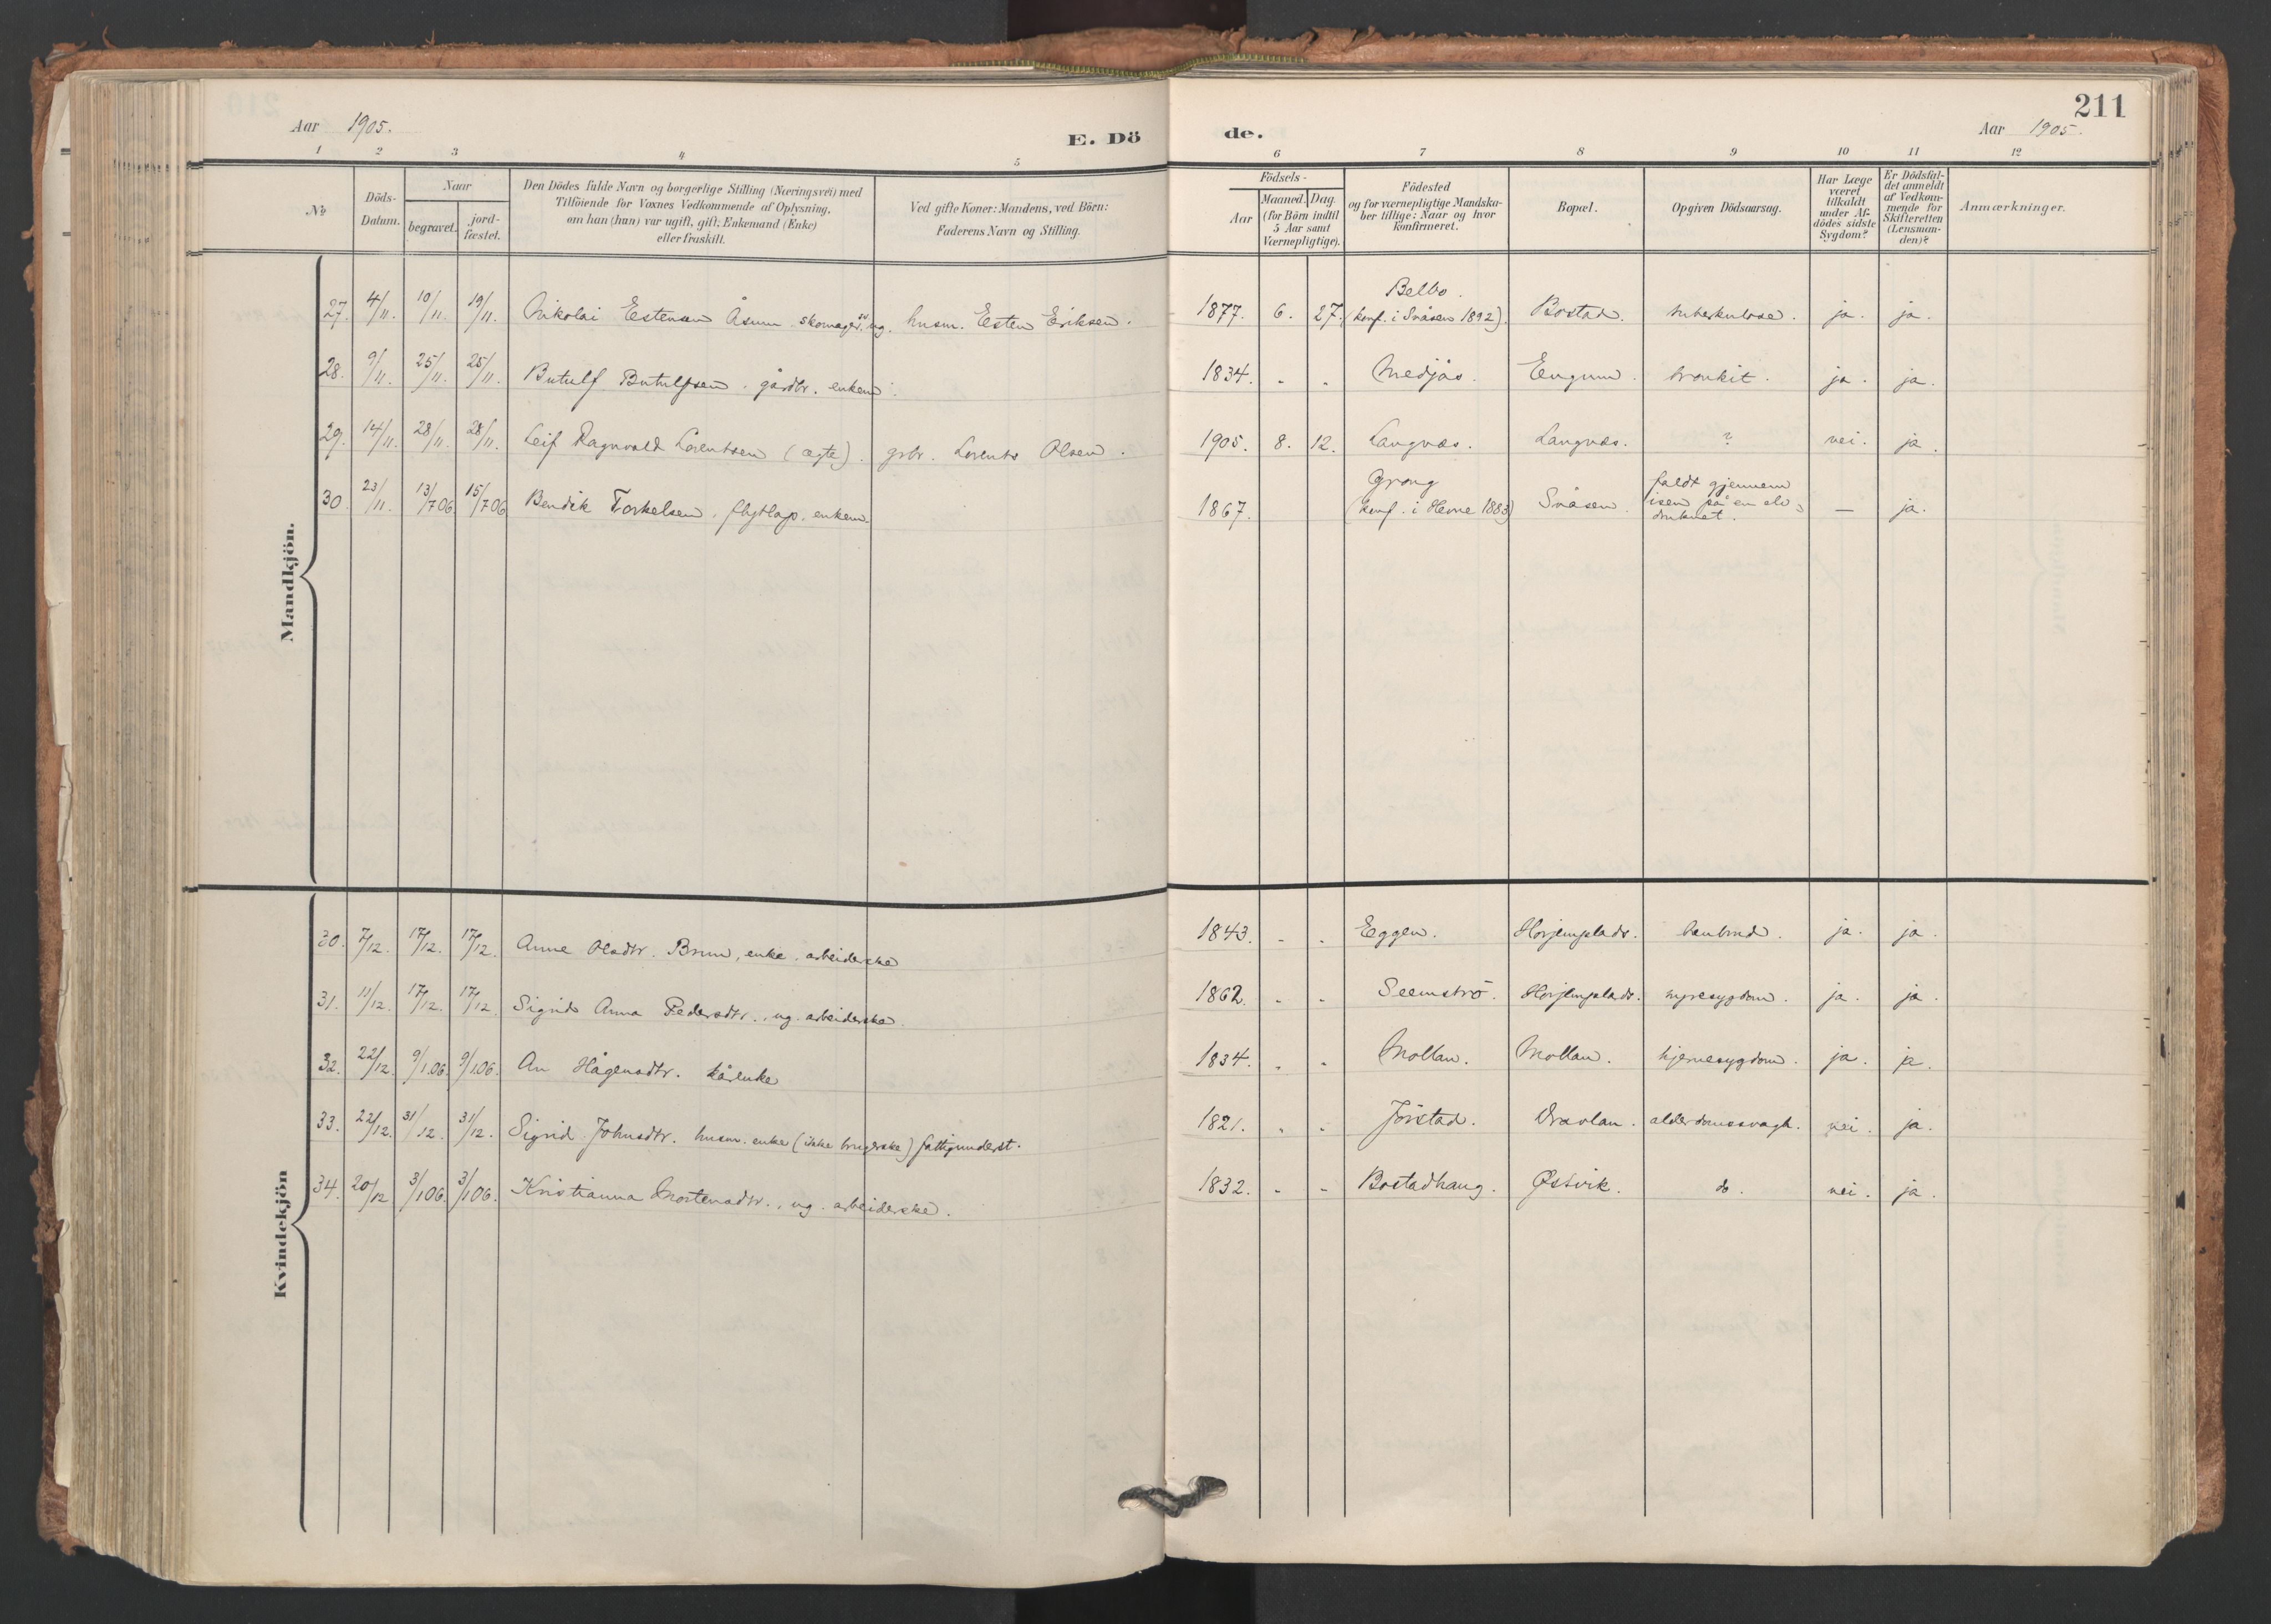 211
Aar 1905.
E. Dö
de.
Aar 1905.
1 2 3 4 5 6 7 8 9 10 11 12
No
Döds-
Datum.
Naar
begravet.
jord-
fæstet.
Den Dödes fulde Navn og borgerlige Stilling (Næringsvei) med
Tilföiende for Voxnes Vedkommende af Oplysning,
om han (hun) var ugift, gift, Enkemand (Enke)
eller fraskilt.
Ved gifte Koner: Mandens, ved Börn:
Faderens Navn og Stilling.
Födsels-
Aar
Maaned. Dag.
(for Börn indtil
5 Aar samt
Værnepligtige).
Födested
og for værnepligtige Mandska-
ber tillige: Naar og hvor
konfirmeret.
Bopæl.
Opgiven Dödsaarsag.
Har Læge
været
tilkaldt
under Af-
dödes sidste
Sygdom?
Er Dödsfal-
det anmeldt
af Vedkom-
mende for
Skifteretten
(Lensman-
den)?
Anmærkninger.
Mandkjön.
27. 4/11. 10/11. 19/11. Nikolai Estensen Åsum skomager. ug. husm. Esten Eriksen. 1877. 6. 27. Belbo. (konf. i Snåsen 1892). Bostad. tuberkulose. ja. ja.
28. 9/11. 25/11. 25/11. Butulf Butulfsen. gårdbr. enkem. 1834. " " Medjås. Engum. bronkit. ja. ja.
29. 14/11. 28/11. 28/11. Leif Ragnvald Lorentsen (ægte). grbr. Lorents Olsen. 1905. 8. 12. Langnæs. Langnæs. ? nei. ja.
30. 23/11. 13/706. 15/706 Bendik Torkelsen. flytlap. enkem. 1867. Grong (konf. i Hevne 1883) Snåsen. faldt gjennem
isen på en elv;
druknet. — ja.
Kvindekjön
30. 7/12. 17/12. 17/12. Anne Olsdtr. Brun, enke. arbeiderske 1843. " " Eggen. Horjemplads. benbrud. ja. ja.
31. 11/12. 17/12. 17/12. Sigrid Anna Pedersdtr., ug. arbeiderske. 1862. " " Seemströ. Horjemplads. nyresygdom. ja. ja.
32. 22/12. 9/1.06. 9/1.06. An Hågensdtr. kårenke 1834. " " Mollan. Mollan. hjernesygdom. ja. ja.
33. 22/12. 31/12. 31/12. Sigrid Johnsdtr. husm. enke (ikke brugerske) fattigunderst. 1821. " " Jörstad. Dravlan. alderdomssvagh. nei. ja.
34. 20/12 3/106. 3/106. Kristianna Mortensdtr., ug. arbeiderske. 1832. " " Bostadhaug. Østvik. do. nei. ja.